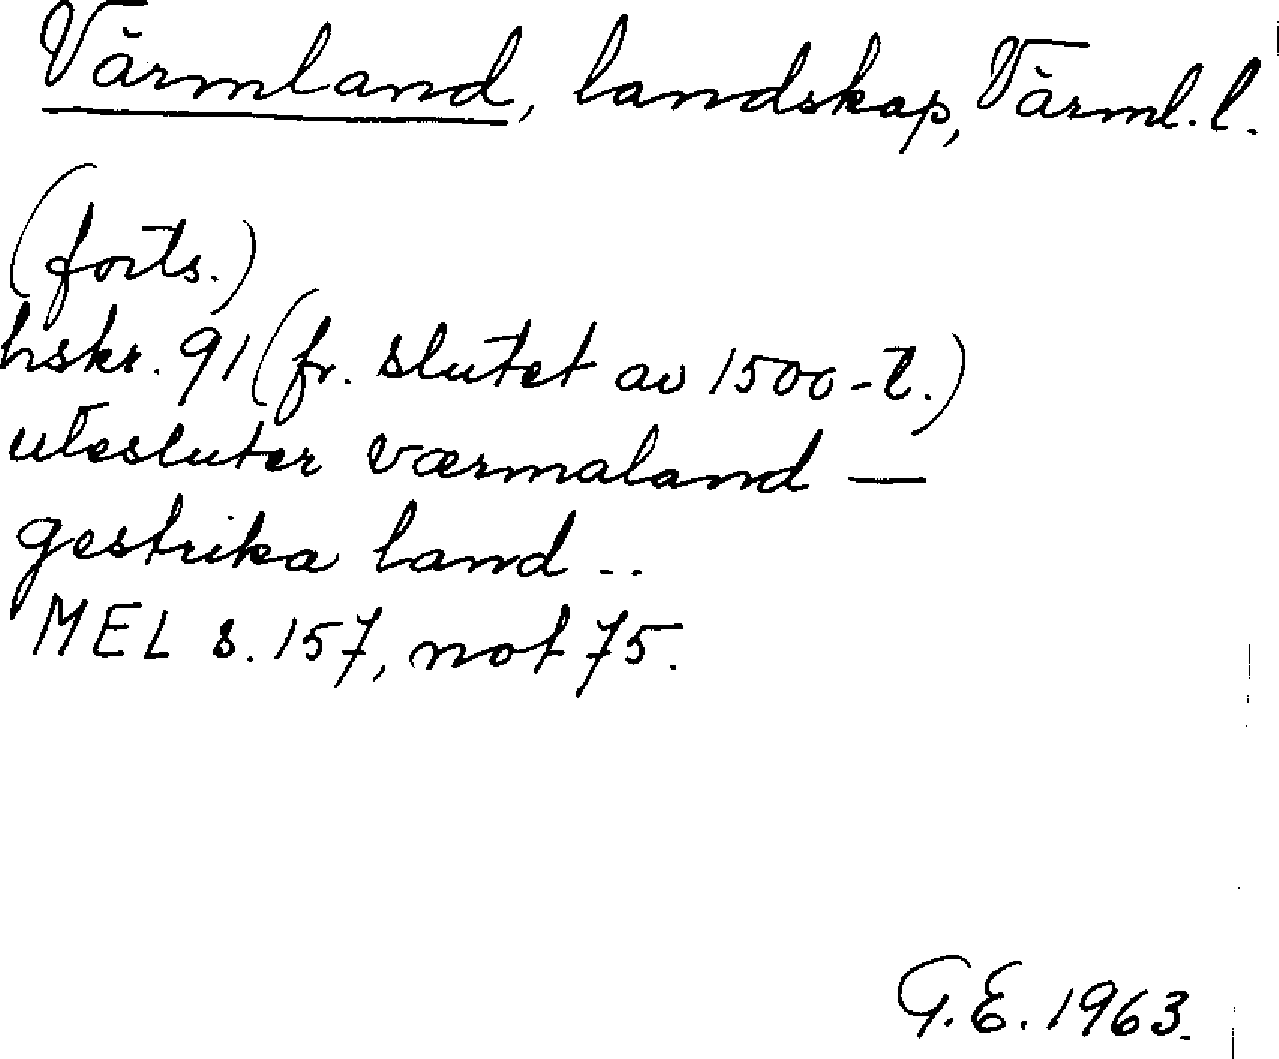 Värmland, landskap, Värml. l.
(forts.)
hskr. 91 (fr. slutet av 1500-t.)
utesluter værmaland —
gestrika land ..
MEL s. 157, not 75.
G.E. 1963.